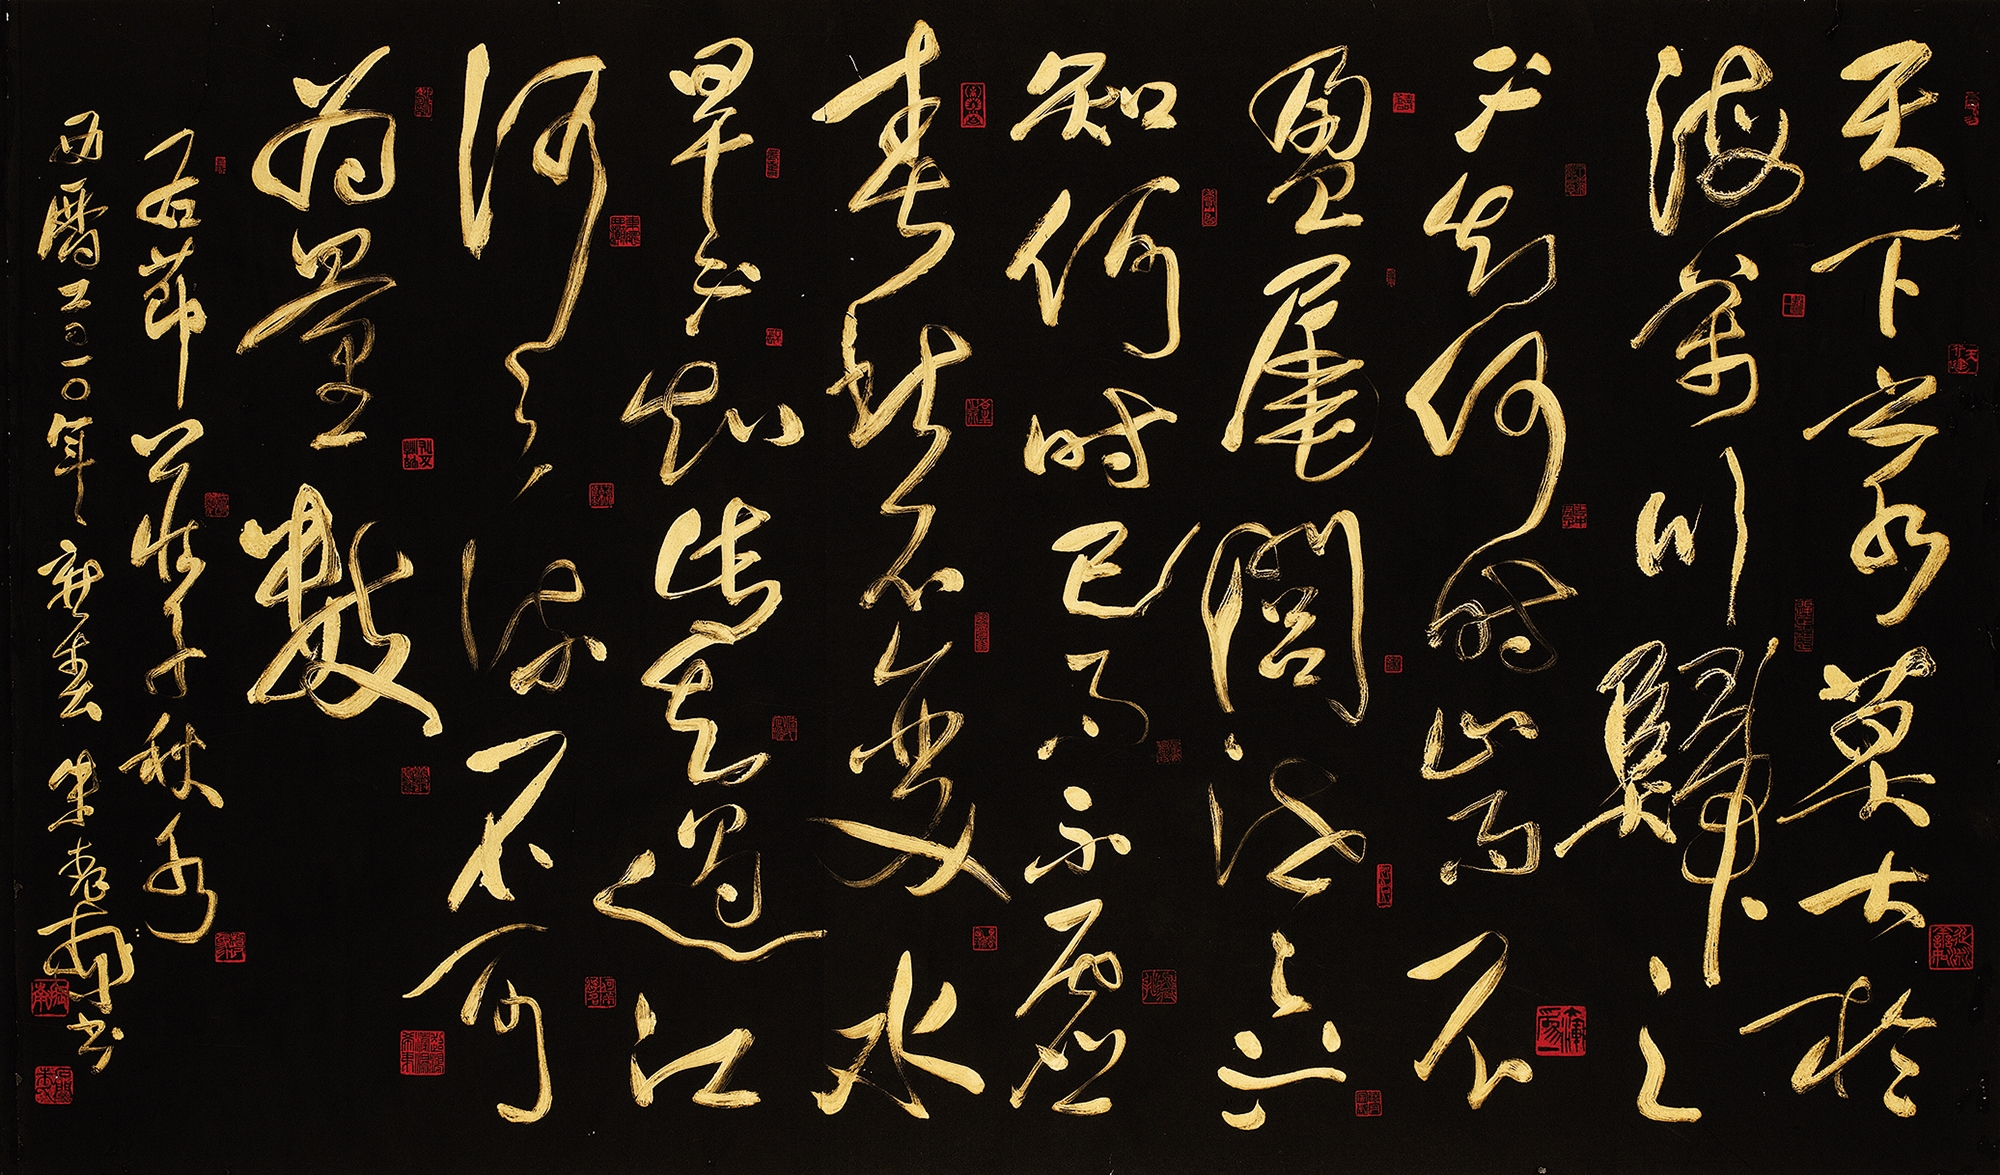 天下之水莫大於
海萬川歸之
不知何時止而不
盈尾閭泄之不
知何時已而不虛
春秋不變水
旱不知此其過江
河之流不可
為量數
右節莊子秋水
西曆二〇一〇年庚春朱南书